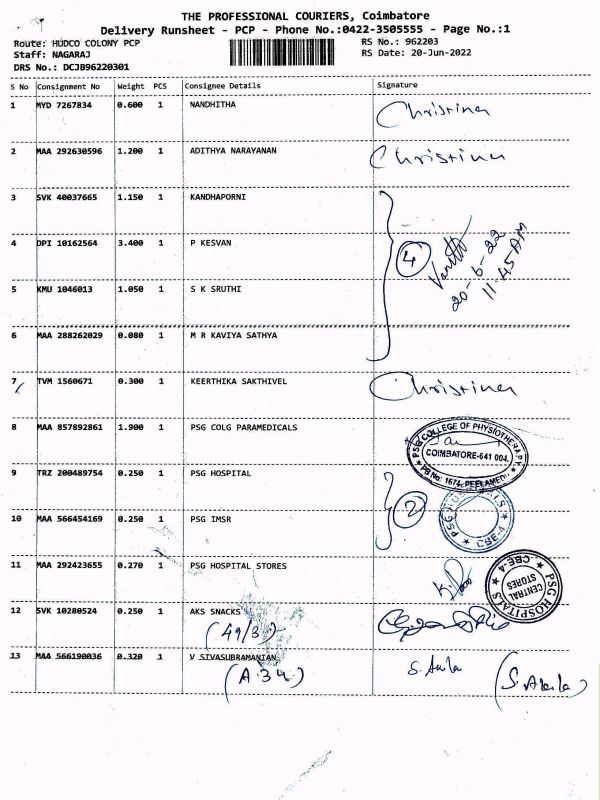 THE PROFESSIONAL COURIERS, Coimbatore
Delivery Runsheet - PCP - Phone No.:0422-3505555 - Page No.:1
Route: HUDCO COLONY PCP
Staff: NAGARAJ
DRS No.: DCJB96220301
RS No.: 962203
RS Date: 20-Jun-2022
S No Consignment No Weight PCS Consignee Details Signature
1 MYD 7267834 0.600 1 NANDHITHA Christina
2 MAA 292630596 1.200 1 ADITHYA NARAYANAN Christina
3 SVK 40037665 1.150 1 KANDHAPORNI
4 DPI 10162564 3.400 1 P KESVAN 4
20-6-22
11.45 AM
5 KMU 1046013 1.050 1 S K SRUTHI
6 MAA 288262029 0.080 1 M R KAVIYA SATHYA
7 TVM 1560671 0.300 1 KEERTHIKA SAKTHIVEL Christina
8 MAA 857892861 1.900 1 PSG COLG PARAMEDICALS
PSG COLLEGE OF PHYSIOTHERAPY
COIMBATORE-641 004.
PB No: 1674, PEELAMEDU
9 TRZ 200489754 0.250 1 PSG HOSPITAL 2
PSG HOSPITALS
CBE-4
10 MAA 566454169 0.250 1 PSG IMSR
11 MAA 292423655 0.270 1 PSG HOSPITAL STORES
PSG HOSPITALS
CENTRAL
STORES
CBE-4
12 SVK 10280524 0.250 1 AKS SNACKS
(49/3)
13 MAA 566190036 0.320 1 V SIVASUBRAMANIAN
(A 34)